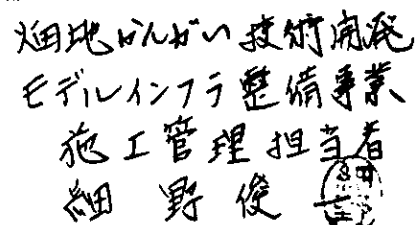 畑地かんがい技術開発
モデルインフラ整備事業
施工管理担当者
細野俊